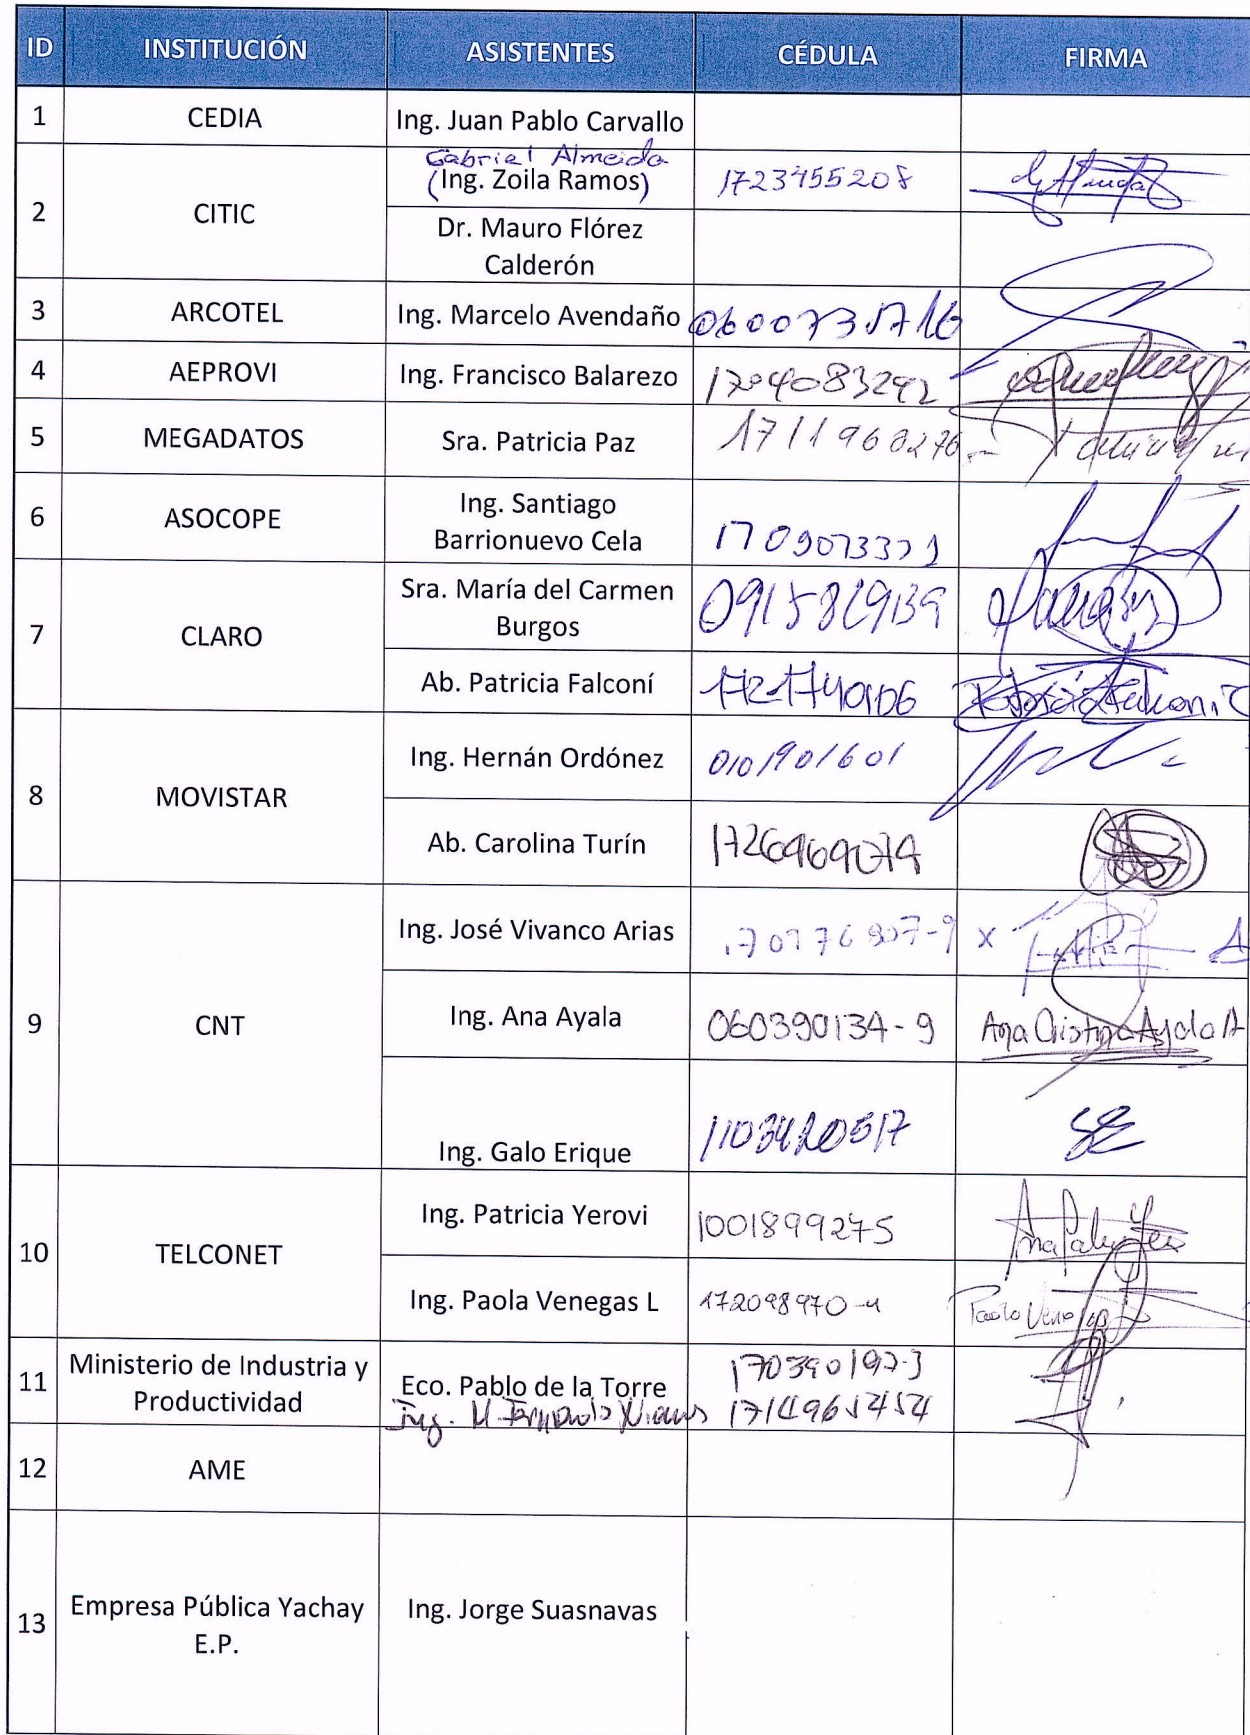 ID INSTITUCIÓN ASISTENTES CÉDULA FIRMA
1 CEDIA Ing. Juan Pablo Carvallo
Gabriel Almeida
2 CITIC (Ing. Zoila Ramos) 1723455208
Dr. Mauro Flórez
Calderón
3 ARCOTEL Ing. Marcelo Avendaño
4 AEPROVI Ing. Francisco Balarezo 1704083292
5 MEGADATOS Sra. Patricia Paz
6 ASOCOPE Ing. Santiago
Barrionuevo Cela
7 CLARO Sra. María del Carmen
Burgos
Ab. Patricia Falconí Patricia Falconí
8 MOVISTAR Ing. Hernán Ordónez 0101901601
Ab. Carolina Turín
9 CNT Ing. José Vivanco Arias
Ing. Ana Ayala 060390134-9 Ana Cristina Ayala A
Ing. Galo Erique 1103420517
10 TELCONET Ing. Patricia Yerovi 1001899275
Ing. Paola Venegas L 172098970-4 Paola Venegas
11 Ministerio de Industria y
Productividad Eco. Pablo de la Torre
Ing.
12 AME
13 Empresa Pública Yachay
E.P. Ing. Jorge Suasnavas